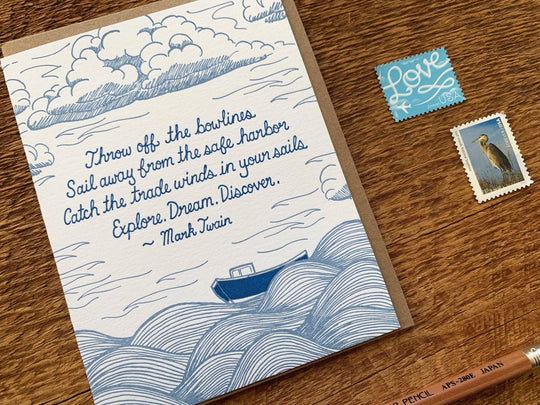 Throw off the bowlines
Sail away from the safe harbor
Catch the trade winds in your sails
Explore. Dream. Discover.
~ Mark Twain
Love
PENCIL APS-280E JAPAN